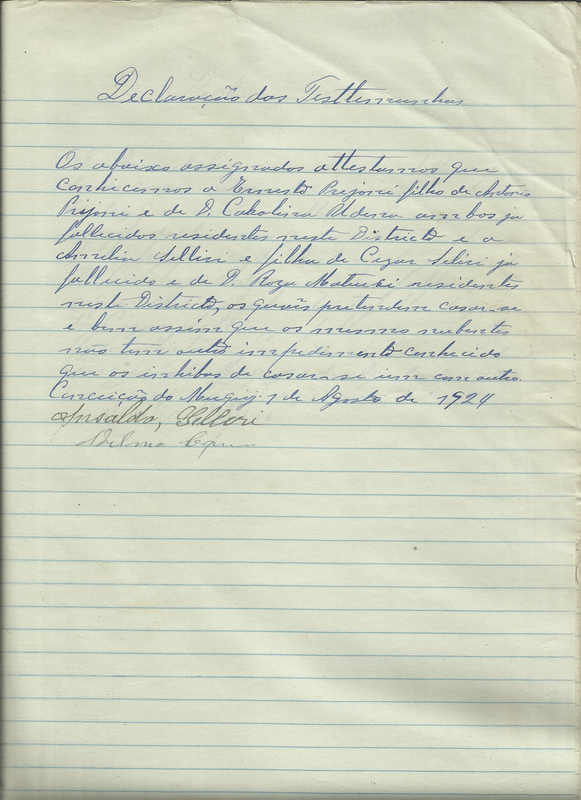 Declaração das Testtemunhas
Os abaixo assignados attestamos que
conhecemos a Ernesto Prijoni filho de Antonio
Prijoni e de D. Carolina Udera ambos ja
fallecidos residentes neste Districto e a
Amelia Sellin e filha de Cezar Selin ja
fallecido e de D. Roza residentes
neste Districto, os quaes pretendem casar-se
e bem assim que os mesmo nubentes
não tem outro impedimento conhecido
que os inhibos de casar-se um com outro.
Conceição do Muquy. 1 de Agosto de 1924